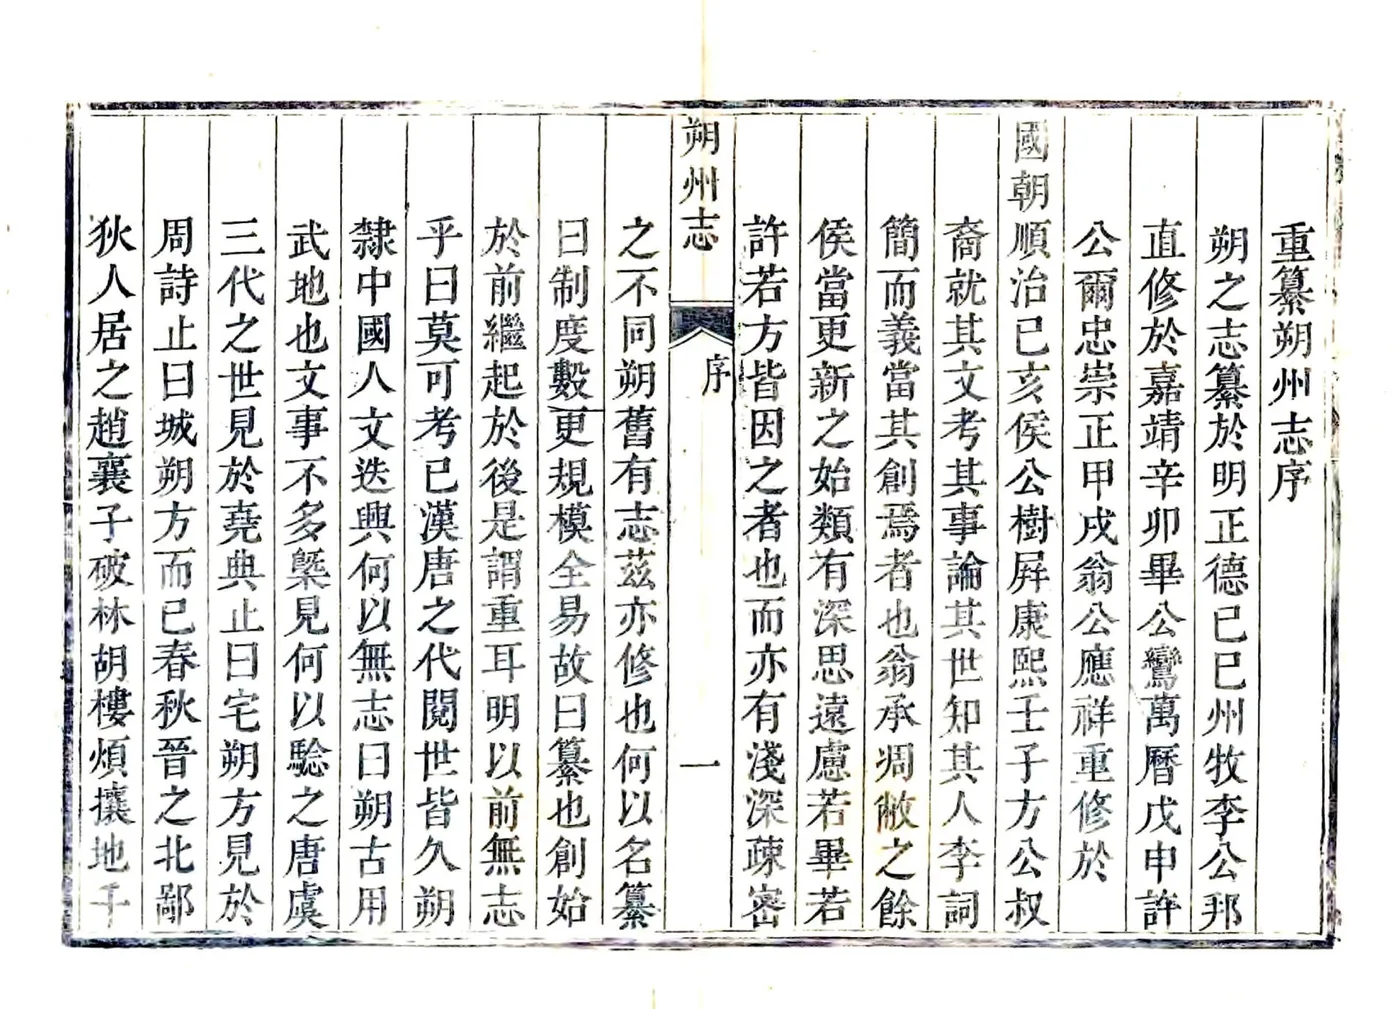 重纂朔州志序
朔之志纂於明正德已巳州牧李公邦
直修於嘉靖辛卯畢公鸞萬曆戊申許
公爾忠崇正甲戌翁公應祥重修於
國朝順治已亥侯公樹屏康熙壬子方公叔
裔就其文考其事論其世知其人李詞
簡而義當其創焉者也翁承凋敝之餘
侯當更新之始類有深思遠慮若畢若
許若方皆因之者也而亦有淺深疎密
朔州志
序
一
之不同朔舊有志茲亦修也何以名纂
曰制度數更規模全易故曰纂也創始
於前繼起於後是謂重耳明以前無志
乎曰莫可考已漢唐之代閱世皆久朔
隸中國人文迭興何以無志曰朔古用
武地也文事不多槩見何以騐之唐虞
三代之世見於堯典止曰宅朔方見於
周詩止曰城朔方而已春秋晉之北鄙
狄人居之趙襄子破林胡樓煩攘地千